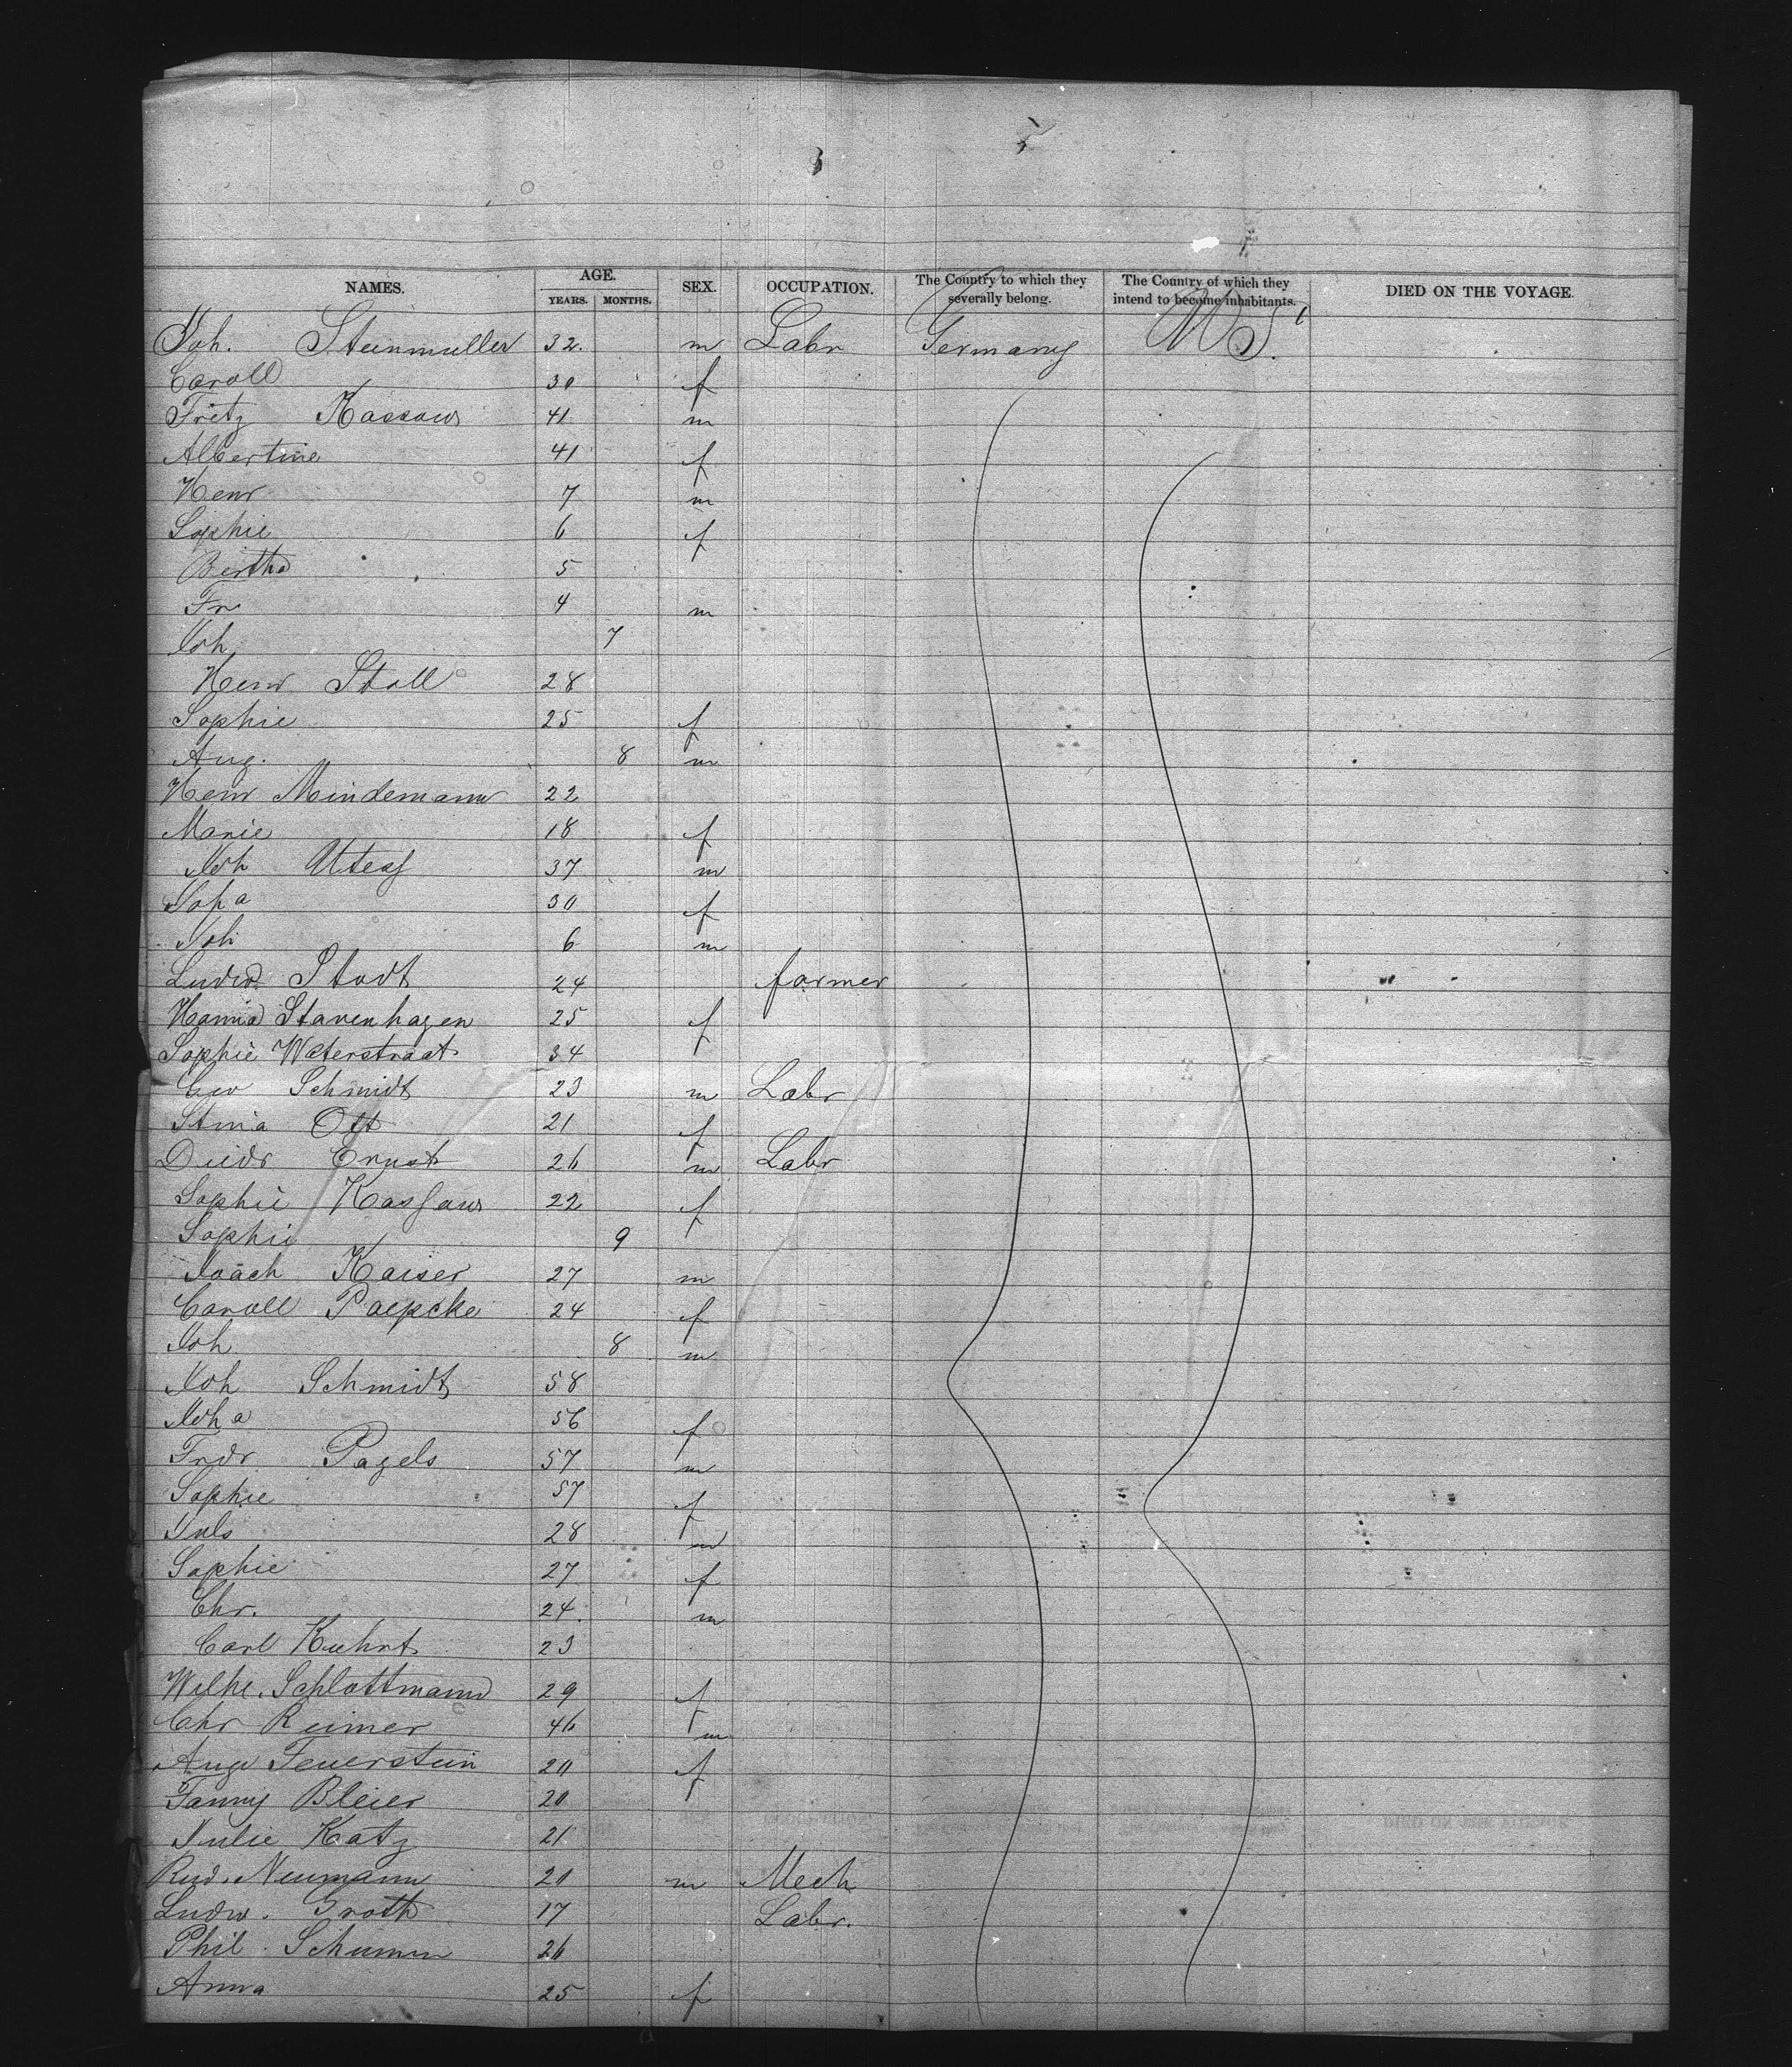 NAMES. AGE. YEARS. MONTHS. SEX. OCCUPATION. The Country to which they severally belong. The Country of which they intend to become inhabitants. DIED ON THE VOYAGE.
Joh. Steinmuller 32 m Labr Germany U.S.
Caroll 30 f
Fritz Kassow 41 m
Albertine 41 f
Henr 7 m
Sophie 6 f
Bertha 5
Fr 4 m
Joh 7
Henr Stoll 28
Sophie 25 f
Aug. 8 m
Henr Mindemann 22
Marie 18 f
Joh Utess 37 m
Joha 30 f
Joh 6 m
Ludw. Stodt 24 farmer
Hanna Stavenhagen 25 f
Sophie Waterstraat 34
Geo Schmidt 23 m Labr
Stina Ott 21 f
Diedr Ernst 26 m Labr
Sophie Kassow 22 f
Sophie 9
Joach Kaiser 27 m
Caroll Paepcke 24 f
Joh 8 m
Joh Schmidt 58
Joha 56 f
Frdr Pagels 57 m
Sophie 57 f
Juls 28 m
Sophie 27 f
Chr. 24 m
Carl Kuhrt 23
Wilhe. Schlottmann 29 f
Chr Reimer 46 m
Auge Feuerstein 20 f
Fanny Bleier 20
Julie Katz 21
Rud. Neumann 20 m Mech
Ludw. Groth 17 Labr.
Phil. 26
Anna 25 f